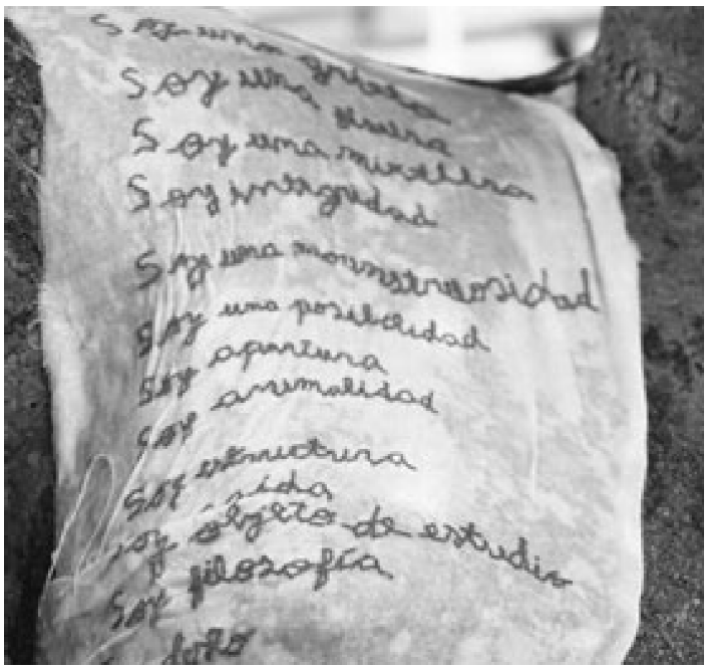 Soy una grieta
Soy una
Soy una
Soy integridad
Soy una monnstruosidad
Soy una posibilidad
Soy apertura
Soy animalidad
Soy estructura
soy objeto de estudio
Soy filosofía